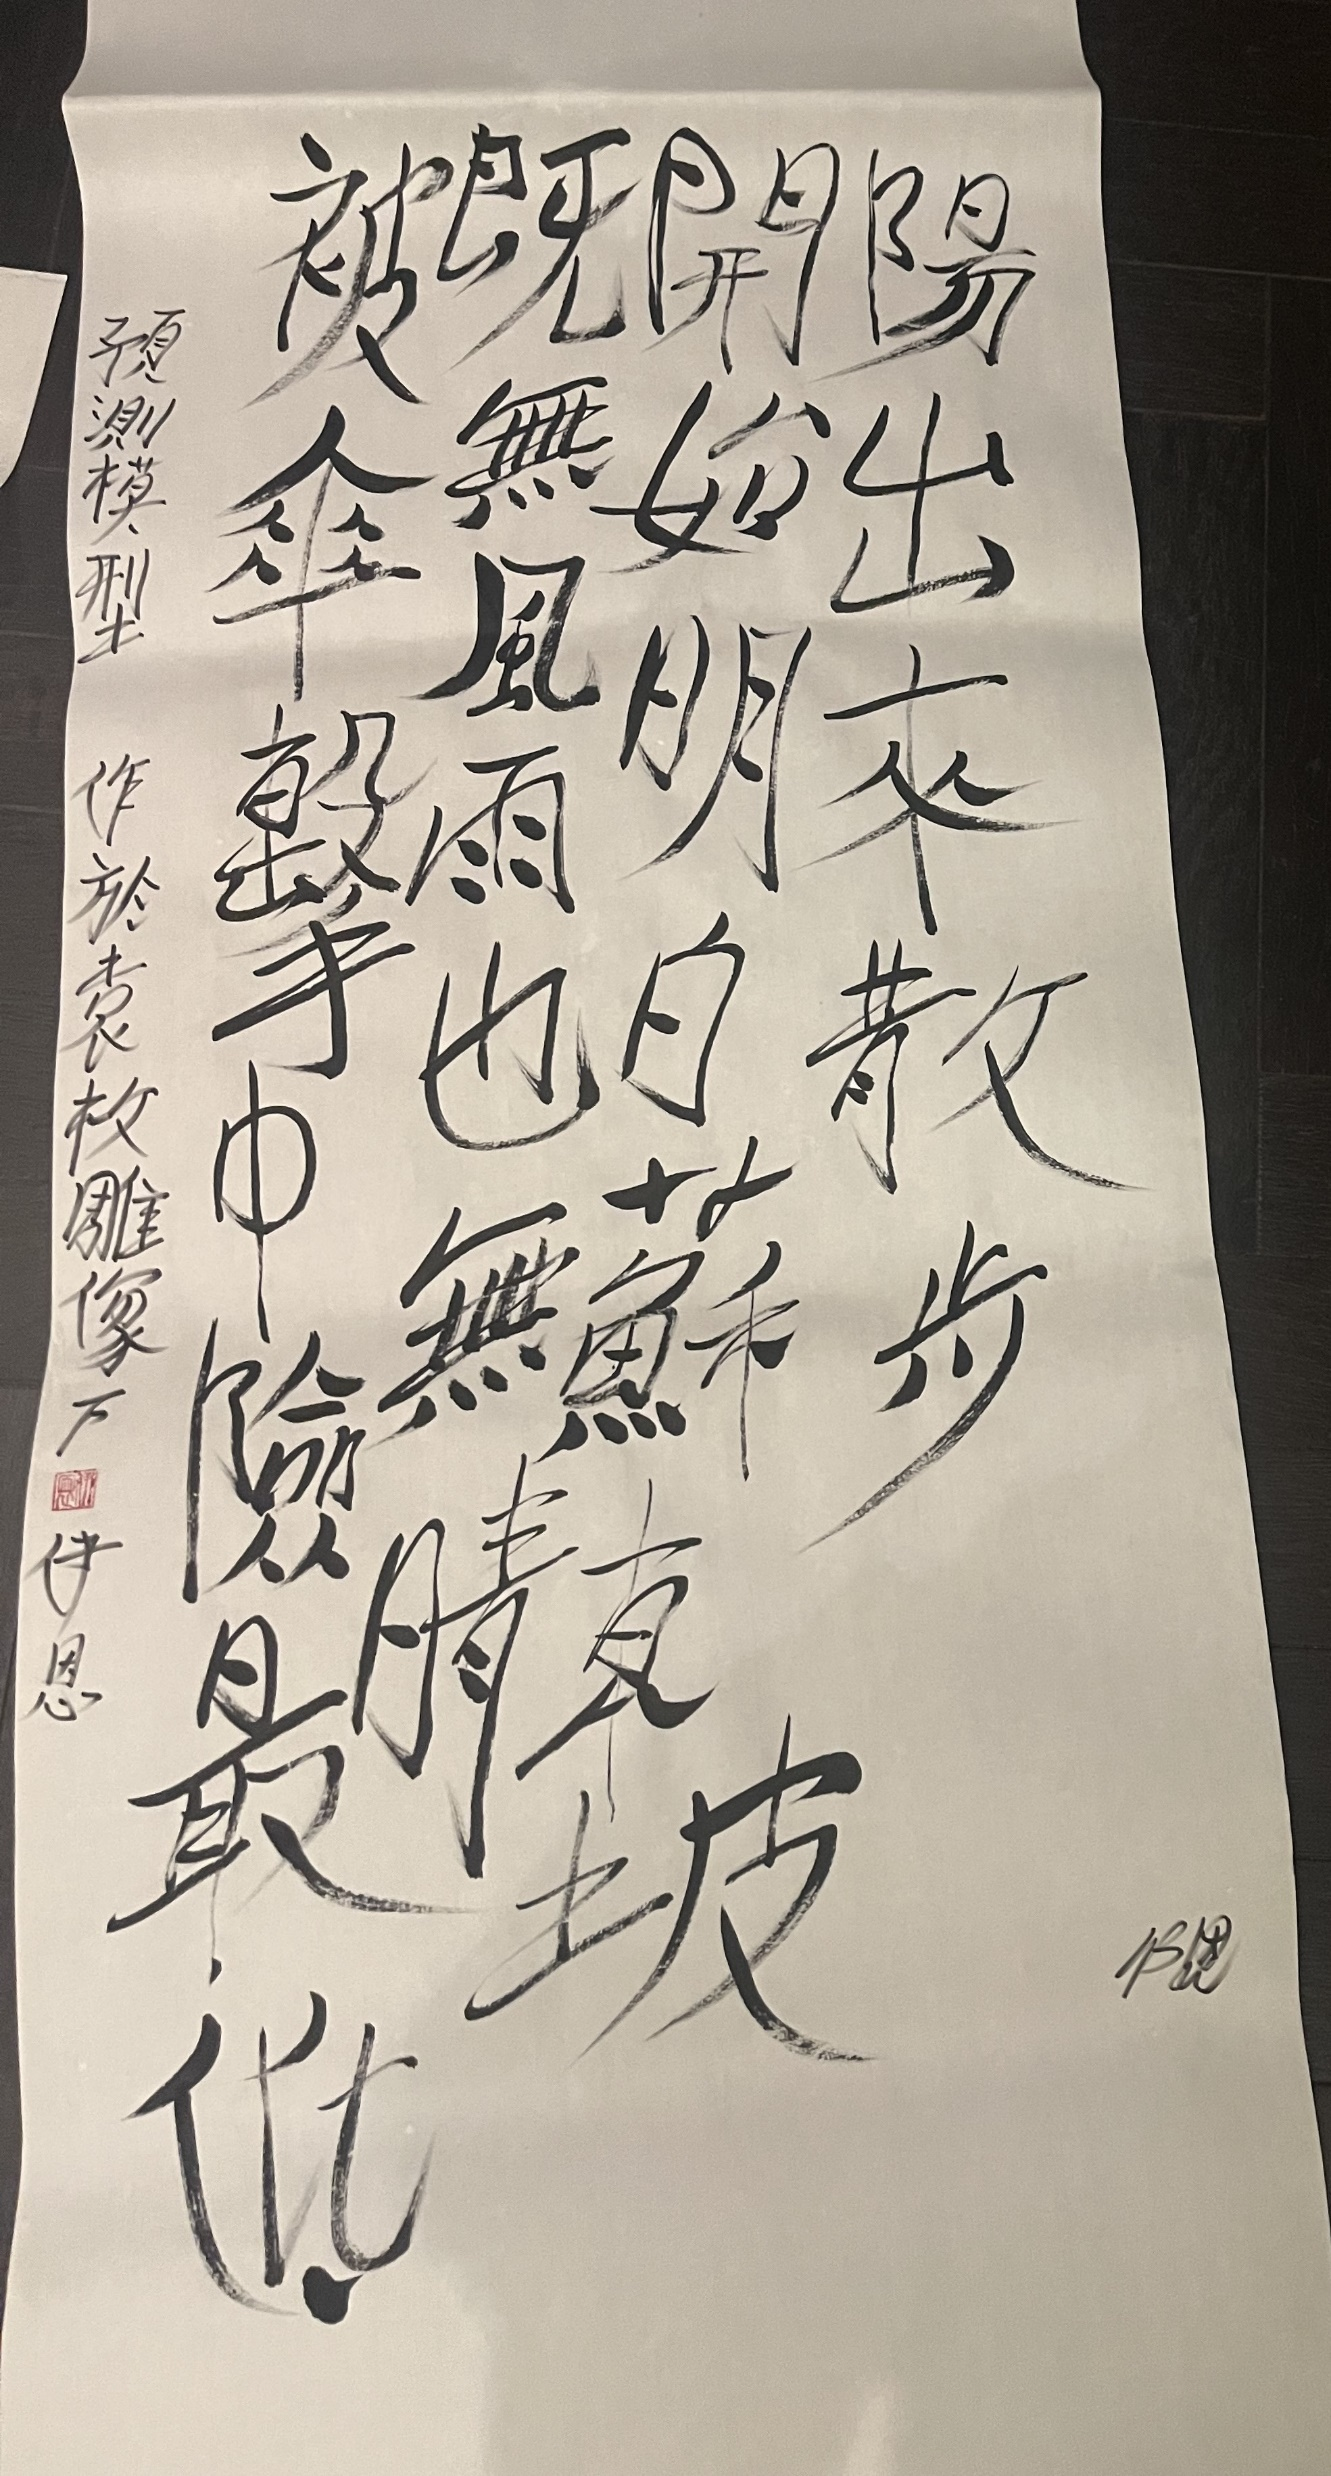 陽出來散步
開始明白蘇東坡
既無風雨也無晴
被傘擊中險最低
預測模型 作於袁枚雕像下
伊恩